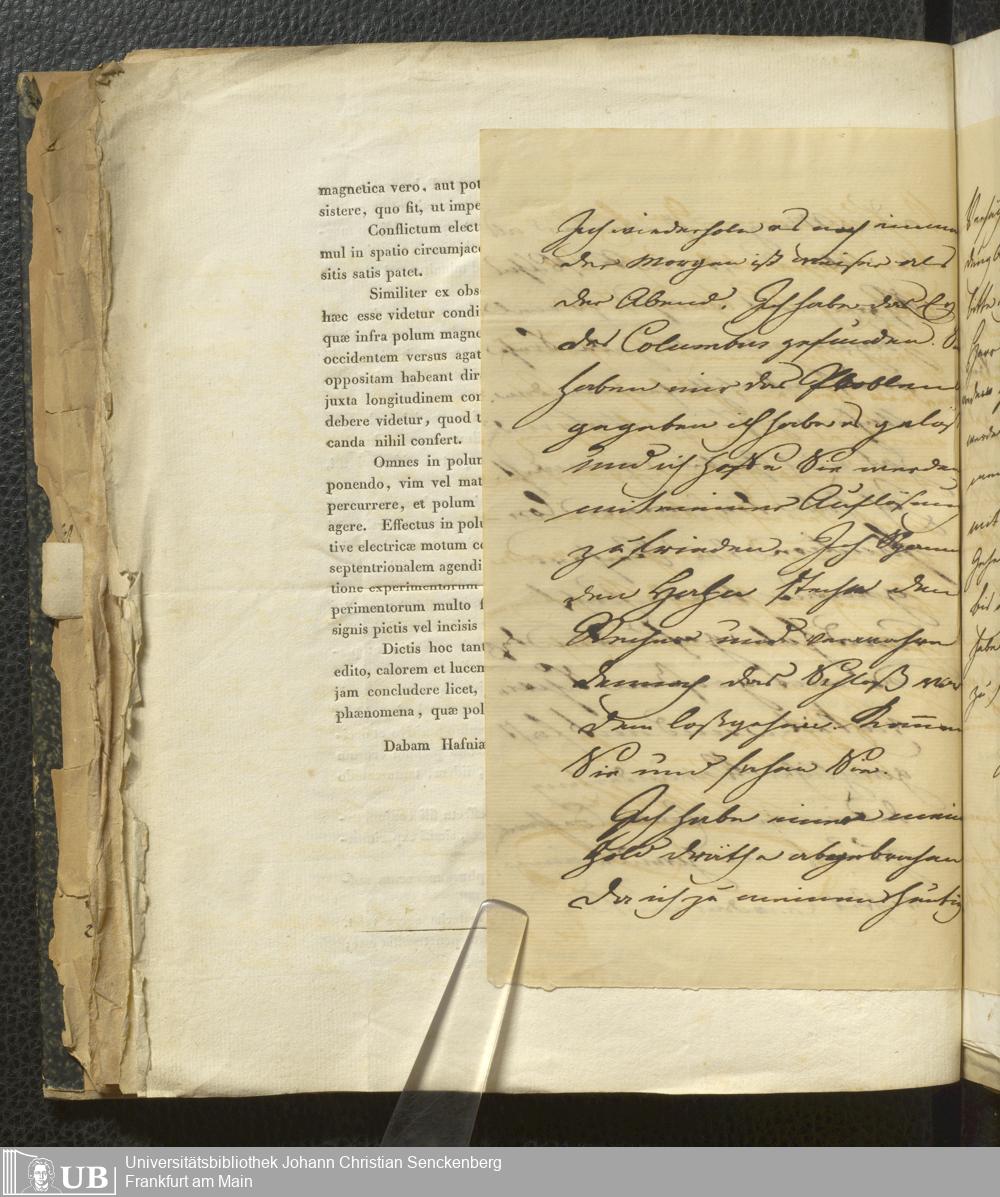 magnetica vero, aut pot
sistere, quo fit, ut impe
Conflictum elect
mul in spatio circumjace
sitis satis patet.
Similiter ex obs
hæc esse videtur condi
quæ infra polum magne
occidentem versus agat
oppositam habeant dir
juxta longitudinem con
debere videtur, quod t
canda nihil confert.
Omnes in polum
ponendo, vim vel mat
percurrere, et polum
agere. Effectus in polu
tive electricæ motum co
septentrionalem agendi
tione experimentorum
perimentorum multo f
signis pictis vel incisis
Dictis hoc tant
edito, calorem et lucem
jam concludere licet,
phænomena, quæ pol
Dabam Hafniæ
Ich wiederhole es noch immer
der Morgen ist weiser als
der Abend. Ich habe das Ey
des Columbus gefunden. Sie
haben mir das Problem
gegeben ich habe es gelös
und ich hoffe Sie werden
mit meiner Auflösung
zufrieden. Ich Spann
den Hahn steche den
und verwahre
dennoch das Schloß vor
dem losgehen. Kommen
Sie und sehen Sie.
Ich habe einen mein
Gold dräthe abgebrochen
da ich zu meinem
2
UB
Universitätsbibliothek Johann Christian Senckenberg
Frankfurt am Main